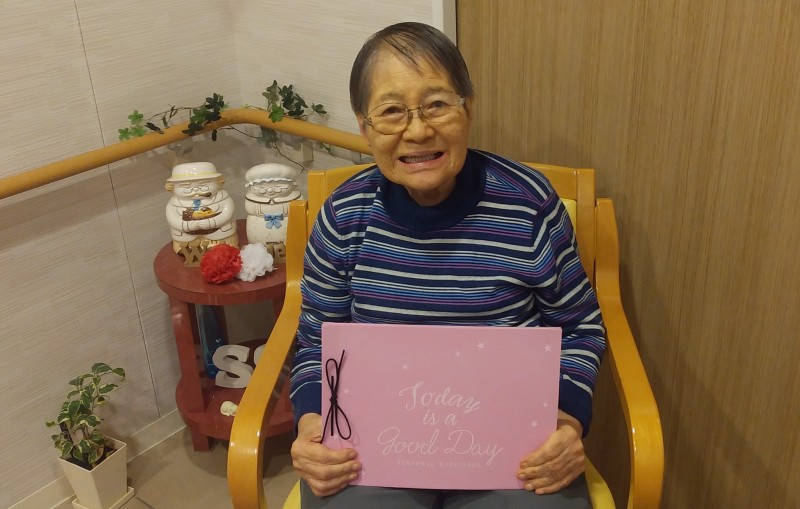 Today
is a
Good Day